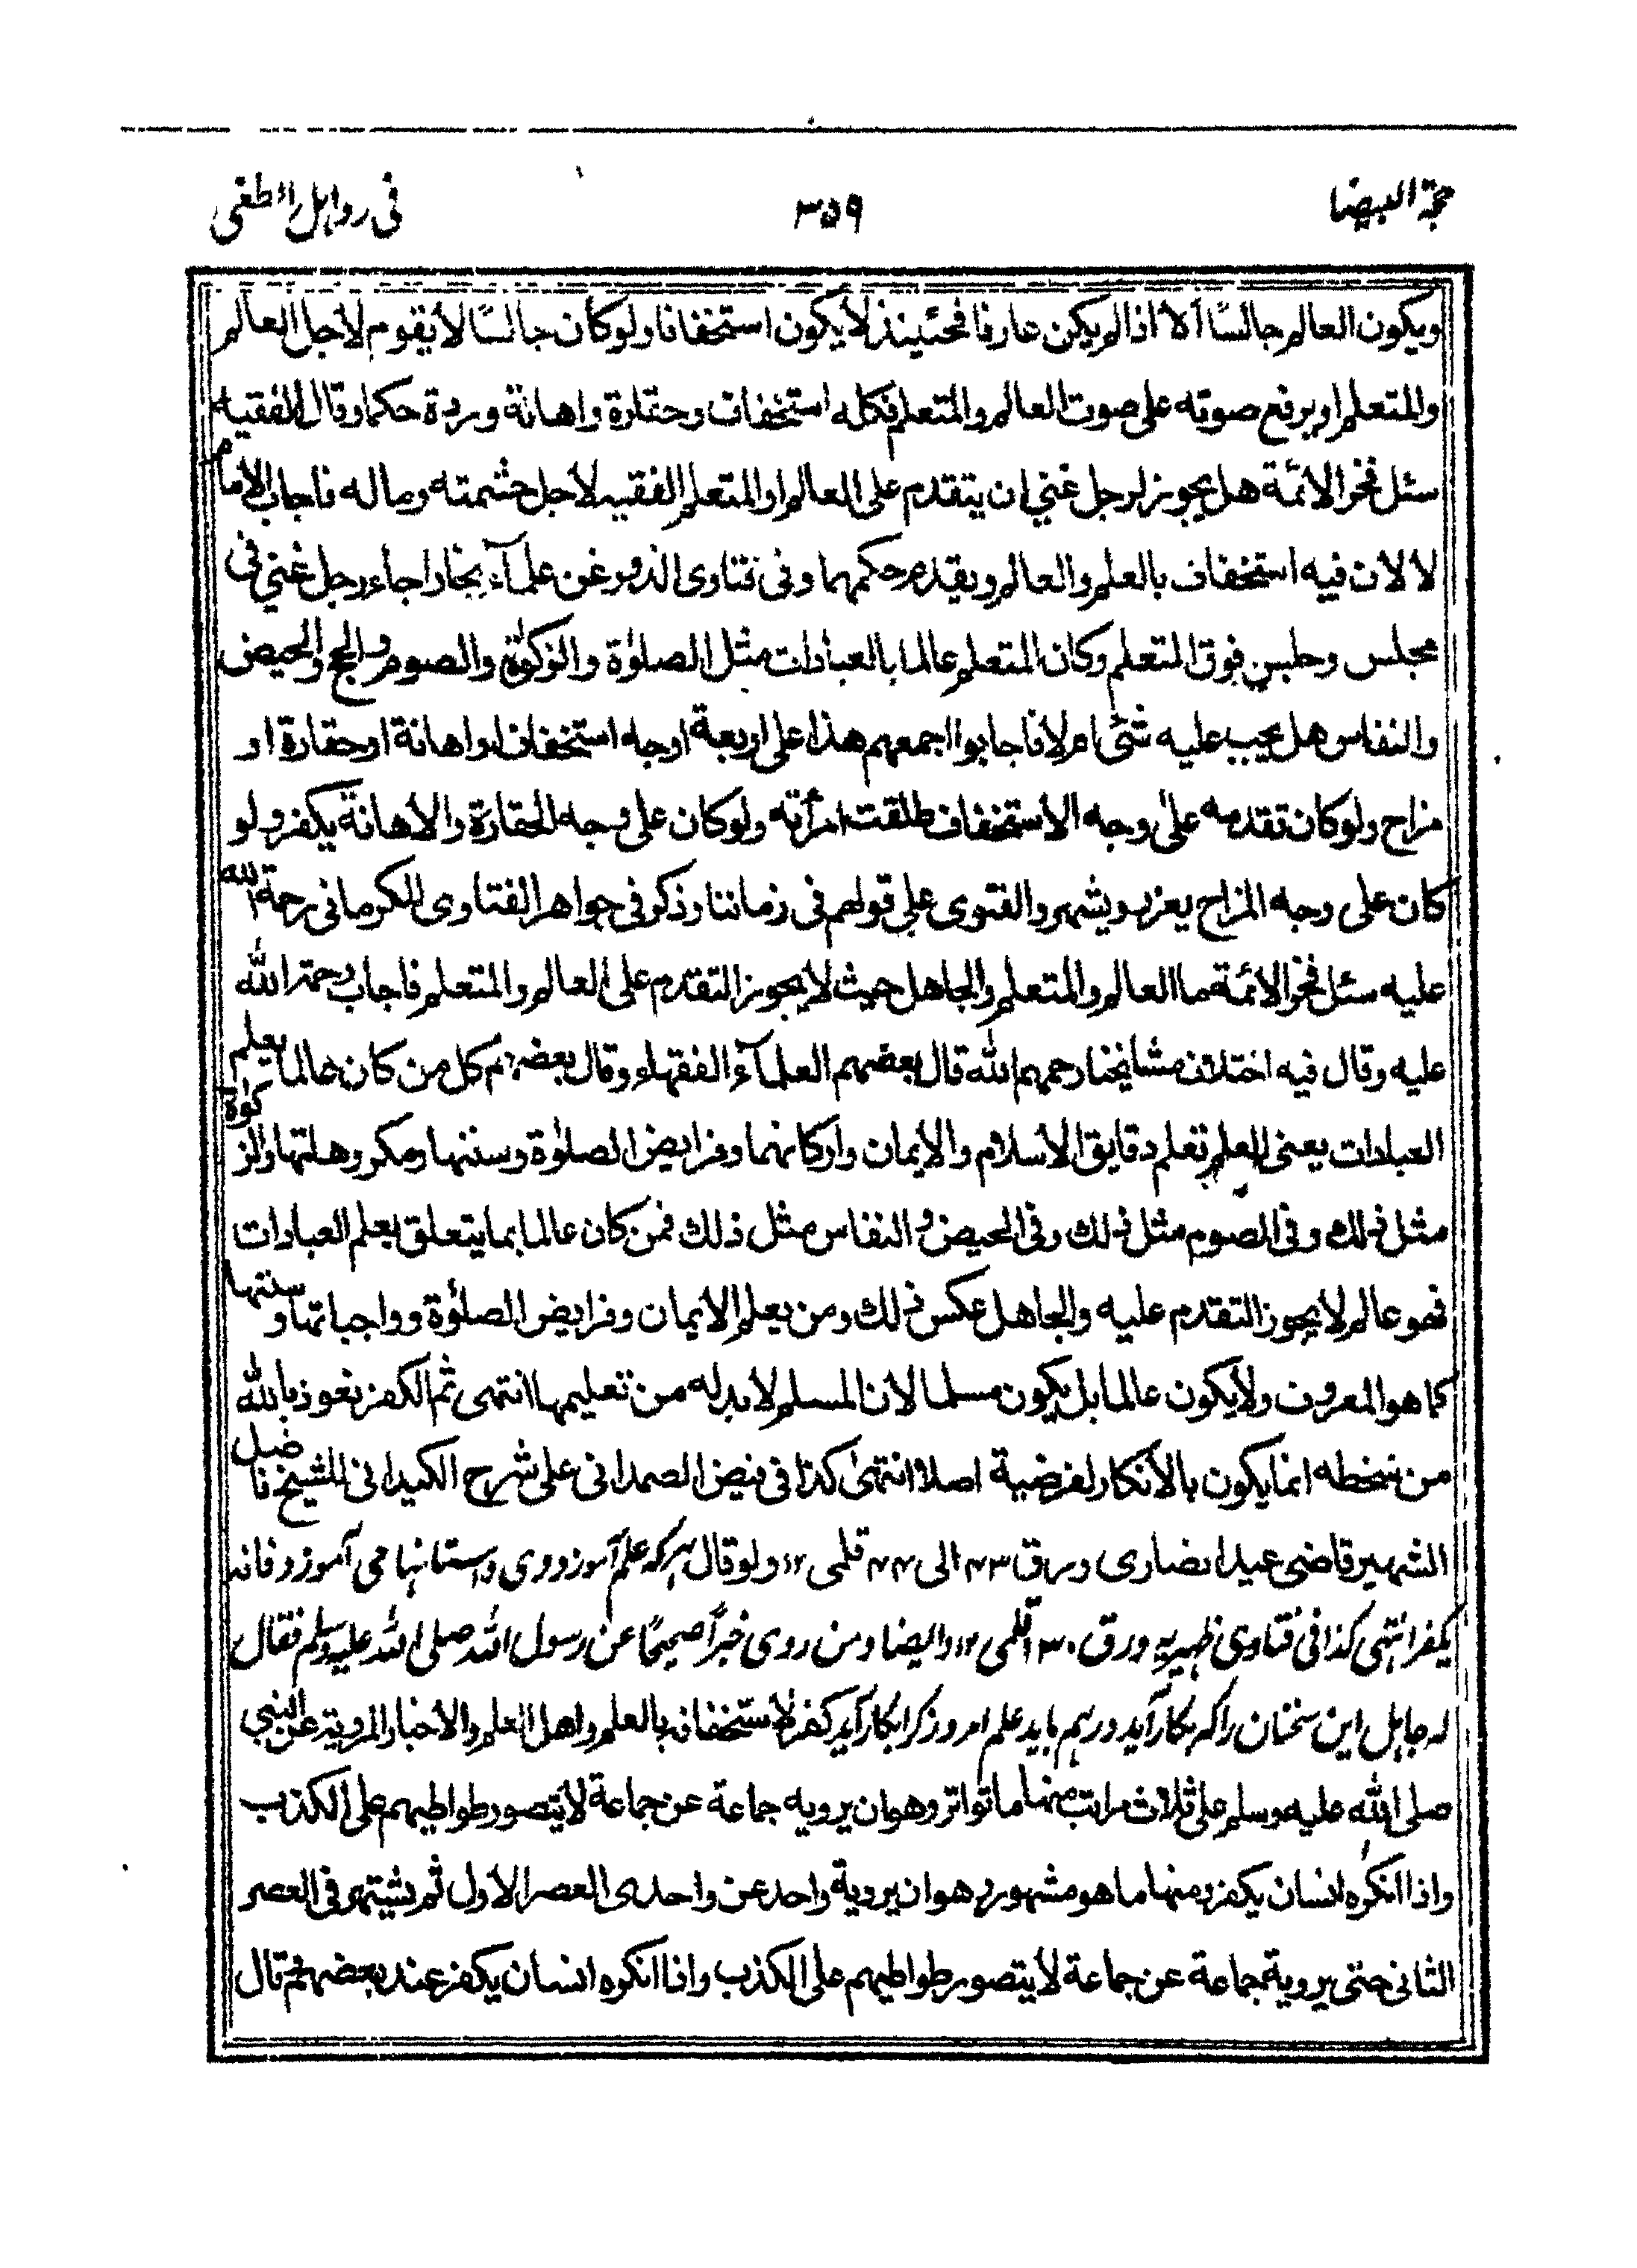 حجة البيضا ٣٥٩ فى رد اہل الطغى
ويكون العالم جالسًا ألا اذا لم يكن عارفا فحئينذ لا يكون استخفافا ولو كان جالسًا لا يقوم لاجل العالم
والمتعلم او يرفع صوته على صوت العالم والمتعلم فكله استخفاف وحقارة واهانة وردة حكما وقال الفقيه
سئل فخر الائمة هل يجوز لرجل غني ان يتقدم على العالم او المتعلم الفقيه لاجل حشمته وماله فاجاب الامام
لا لان فيه استخفاف بالعلم والعالم ويقدم حكمهما وفى فتاوى الذور عن علمآء بخارا جاء رجل غني فى
مجلس وجلس فوق المتعلم وكان المتعلم عالما بالعبادات مثل الصلوة والزكوة والصوم والحج والحيض
والنفاس هل يجب عليه شئى ام لا فاجابوا اجمعهم هذا على اربعة اوجه استخفاف او اهانة او حقارة او
مزاح ولو كان تقدمه على وجه الاستخفاف طلقت امرأته ولو كان على وجه الحقارة والاهانة يكفر ولو
كان على وجه المزاح يعزر ويشهر والفتوى على قولهم فى زماننا وذكر فى جواهر الفتاوى للكرمانى رحمة الله
عليه سئل فخر الائمة ما العالم والمتعلم والجاهل حيث لا يجوز التقدم على العالم والمتعلم فاجاب رحمة الله
عليه وقال فيه اختلاف مشايخنا رحمهم الله قال بعضهم العلمآء الفقهاء وقال بعضهم كل من كان عالما بعلم
العبادات يعنى العلم تعلم دقايق الاسلام والايمان واركانهما وفرايض الصلوة وسننها ومكروهاتها والزكوة
مثل ذلك وفى الصوم مثل ذلك وفى الحيض والنفاس مثل ذلك فمن كان عالما بما يتعلق بعلم العبادات
فهو عالم لا يجوز التقدم عليه والجاهل عكس ذلك ومن يعلم الايمان وفرايض الصلوة وواجباتها وسننها
كما هو المعروف ولا يكون عالما بل يكون مسلما لان المسلم لا بد له من تعليمها انتهى ثم الكفر نعوذ بالله
من سخطه انما يكون بالانكار لفرضية اصلا انتهى كذا فى فيض الصمدانى على شرح الكيدانى للشيخ فاضل
الشهير قاضى عبد انصارى ورق ٤٣ الى ٤٤ قلمى ١٢ ولو قال ہر كه علم آموزد وى داستانہا می آموزد فانه
يكفر انتهى كذا فى فتاوى ظهيريه ورق ١٣٠ قلمى ١٢ وايضا ومن روى خبرًا صحيحًا عن رسول الله صلى الله عليه وسلم فقال
له جاہل اين سخنان را كه بكار آيد درہم بايد علم امروز كرا بكار آيد كفر لاستخفافه بالعلم واهل العلم والاخبار المروية عن النبي
صلى الله عليه وسلم على ثلاث مراتب منها ما تواتر وهو ان يرويه جماعة عن جماعة لا يتصور طواطيهم على الكذب
واذا انكره انسان يكفر ومنها ما هو مشهور وهو ان يروية واحد عن واحد فى العصر الاول ثم يشتهر فى العصر
الثانى حتى يروية جماعة عن جماعة لا يتصور طواطيهم على الكذب واذا انكره انسان يكفر عند بعضهم قال